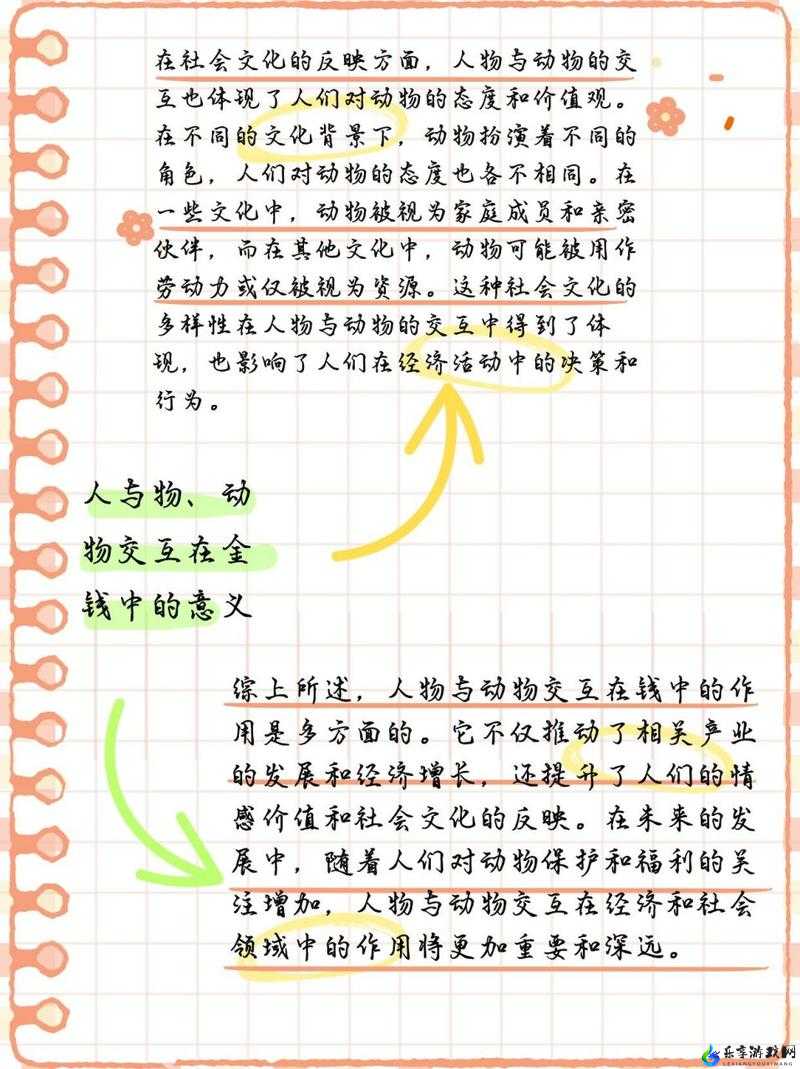 在社会文化的反映方面，人物与动物的交
互也体现了人们对动物的态度和价值观。
在不同的文化背景下，动物扮演着不同的
角色，人们对动物的态度也各不相同。在
一些文化中，动物被视为家庭成员和亲密
伙伴，而在其他文化中，动物可能被用作
劳动力或仅被视为资源。这种社会文化的
多样性在人物与动物的交互中得到了体
现，也影响了人们在经济活动中的决策和
行为。
人与物、动
物交互在金
钱中的意义
综上所述，人物与动物交互在钱中的作
用是多方面的。它不仅推动了相关产业
的发展和经济增长，还提升了人们的情
感价值和社会文化的反映。在未来的发
展中，随着人们对动物保护和福利的关
注增加，人物与动物交互在经济和社会
领域中的作用将更加重要和深远。
乐享游戏网
LEXIANGYOUXIWANG